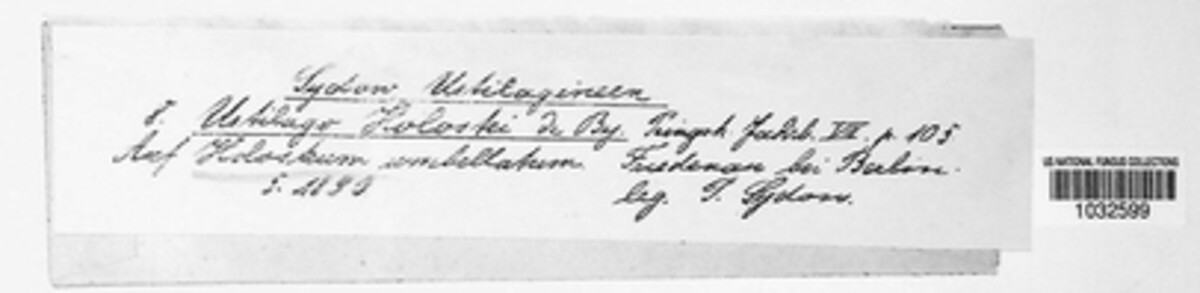 Sydow Ustilagineen
8. Ustilago Holostei De By. Pringsh. Jahrb. VII. p. 105
Auf Holosteum umbellatum. Friedenau bei Berlin.
5. 1890 leg. P. Sydow.
US NATIONAL FUNGUS COLLECTIONS
1032599